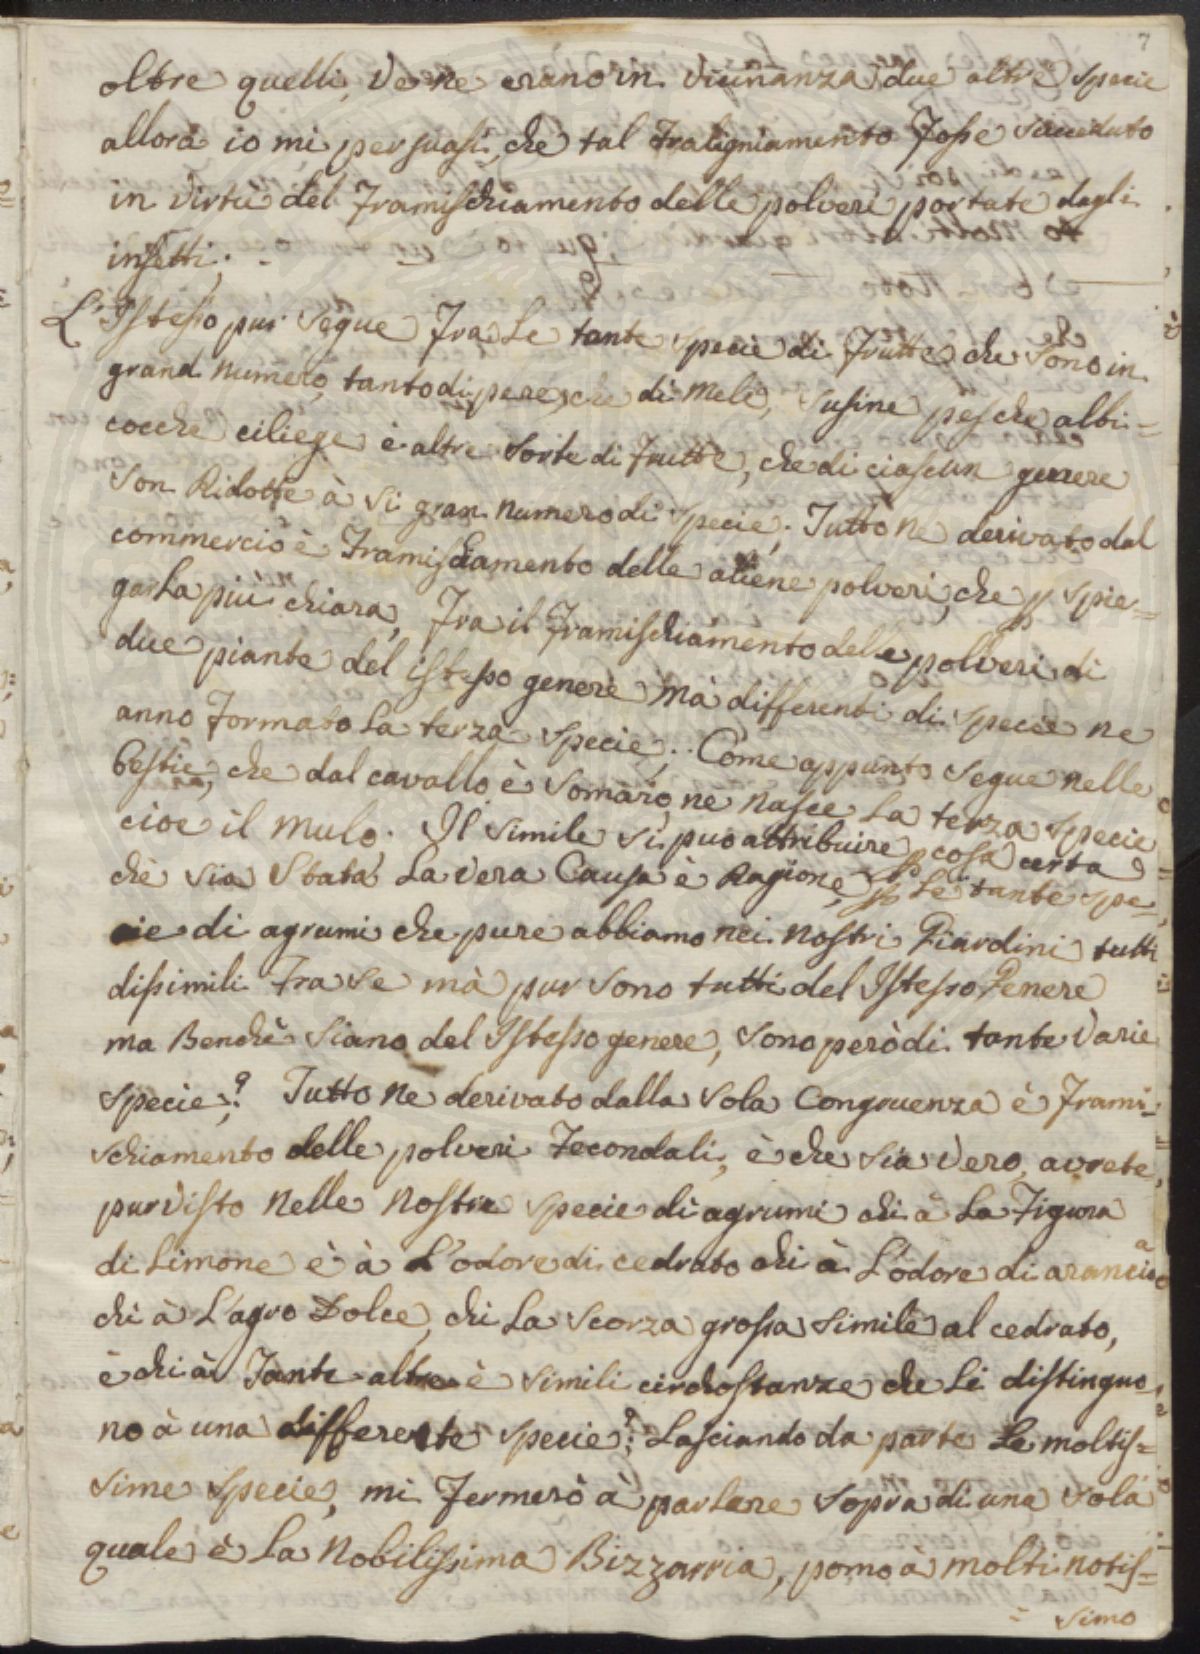 7
oltre quelli, ve ne erano in vicinanza due altre specie
allora io mi persuasi, che tal tralignamento fosse succeduto
in virtù del framischiamento delle polveri portate dagli
insetti.
L'Istesso pur segue fra le tante specie di frutte che sono in
grand numero, tanto di pere, che di mele, susine pesche albi=
cocche ciliege è altre sorte di frutte, che di ciascun genere
son Ridotte à si gran numero di specie; Tutto ne derivato dal
commercio è framischiamento delle aliene polveri, che p spie=
garla più chiara, fra il framischiamento delle polveri di
due piante del istesso genere mà differenti di specie ne
anno formato la terza specie; Come appunto segue nelle
bestie, che dal cavallo è somaro, ne nasce la terza specie
cioe il mulo. Il simile si può attribuire p cosa certa
chè sia stata la vera Causa è Ragione, p le tante spe
cie di agrumi che pure abbiamo nei nostri Giardini tutti
dissimili tra se mà pur sono tutti del Istesso Genere
ma Benchè siano del Istesso genere, sono però di tante varie
specie? Tutto ne derivato dalla sola Congruenza è frami=
schiamento delle polveri fecondali, è che sia vero, avrete
pur visto nelle nostre specie di agrumi chi à la figura
di Limone è à L'odore di cedrato chi à L'odore di arancio
chi à L'agro Dolce, chi la scorza grossa simile al cedrato,
è chi à tante altre è simili circhostanze che li distinguo=
no à una differente specie? Lasciando da parte le moltis=
sime specie, mi fermerò à parlare sopra di una sola
quale è la Nobilissima Bizzarria, pomo à molti notis=
= simo